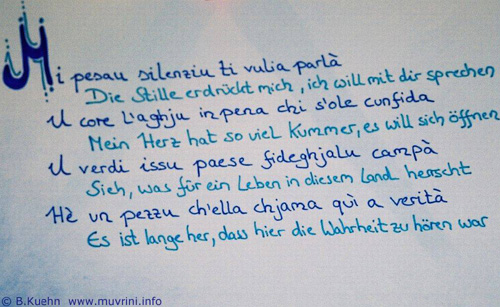 Mi pesau silenziu ti vulia parlà
Die Stille erdrückt mich, ich will mit dir sprechen
U core l'aghju in pena chi s'ole cunfida
Mein Herz hat so viel Kummer, es will sich öffnen
U verdi issu paese fideghjalu campà
Sieh, was für ein Leben in diesem Land herrscht
Hè un pezzu ch'ella chjama quì a verità
Es ist lange her, dass hier die Wahrheit zu hören war
© B.Kuehn www.muvrini.info